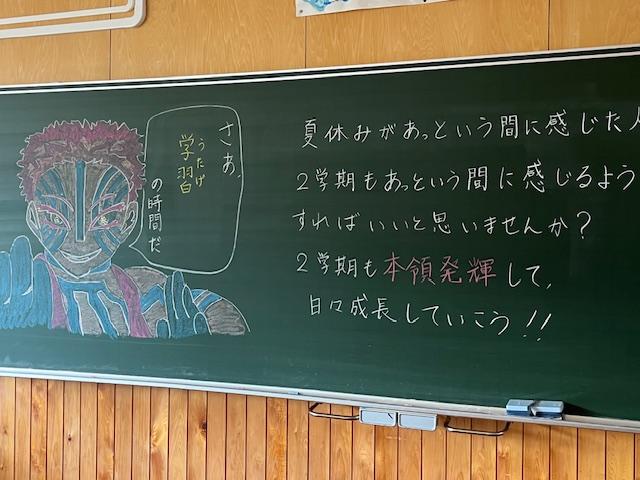 さあ、
学習
うたげ
の時間だ
夏休みがあっという間に感じた人
2学期もあっという間に感じるよう
すればいいと思いませんか？
2学期も本領発輝して、
日々成長していこう!!